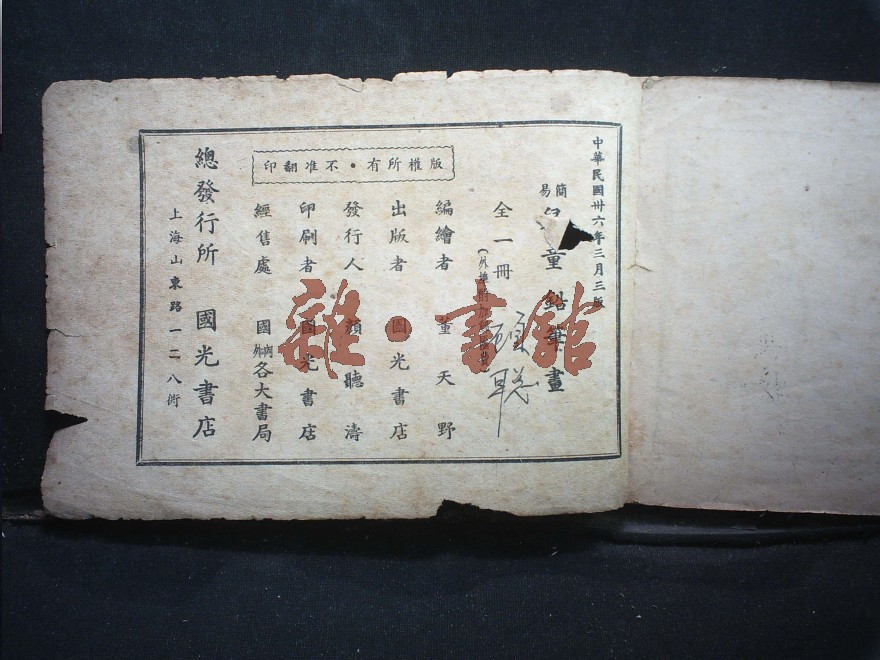 中華民國卅六年三月三版
簡易
童鉛筆畫
全一冊
編繪者 董天野
出版者 國光書店
發行人 顏聽濤
印刷者 國光書店
經售處 國內外各大書局
版權所有・不准翻印
總發行所 國光書店
上海山東路一二八衖
雜・書館